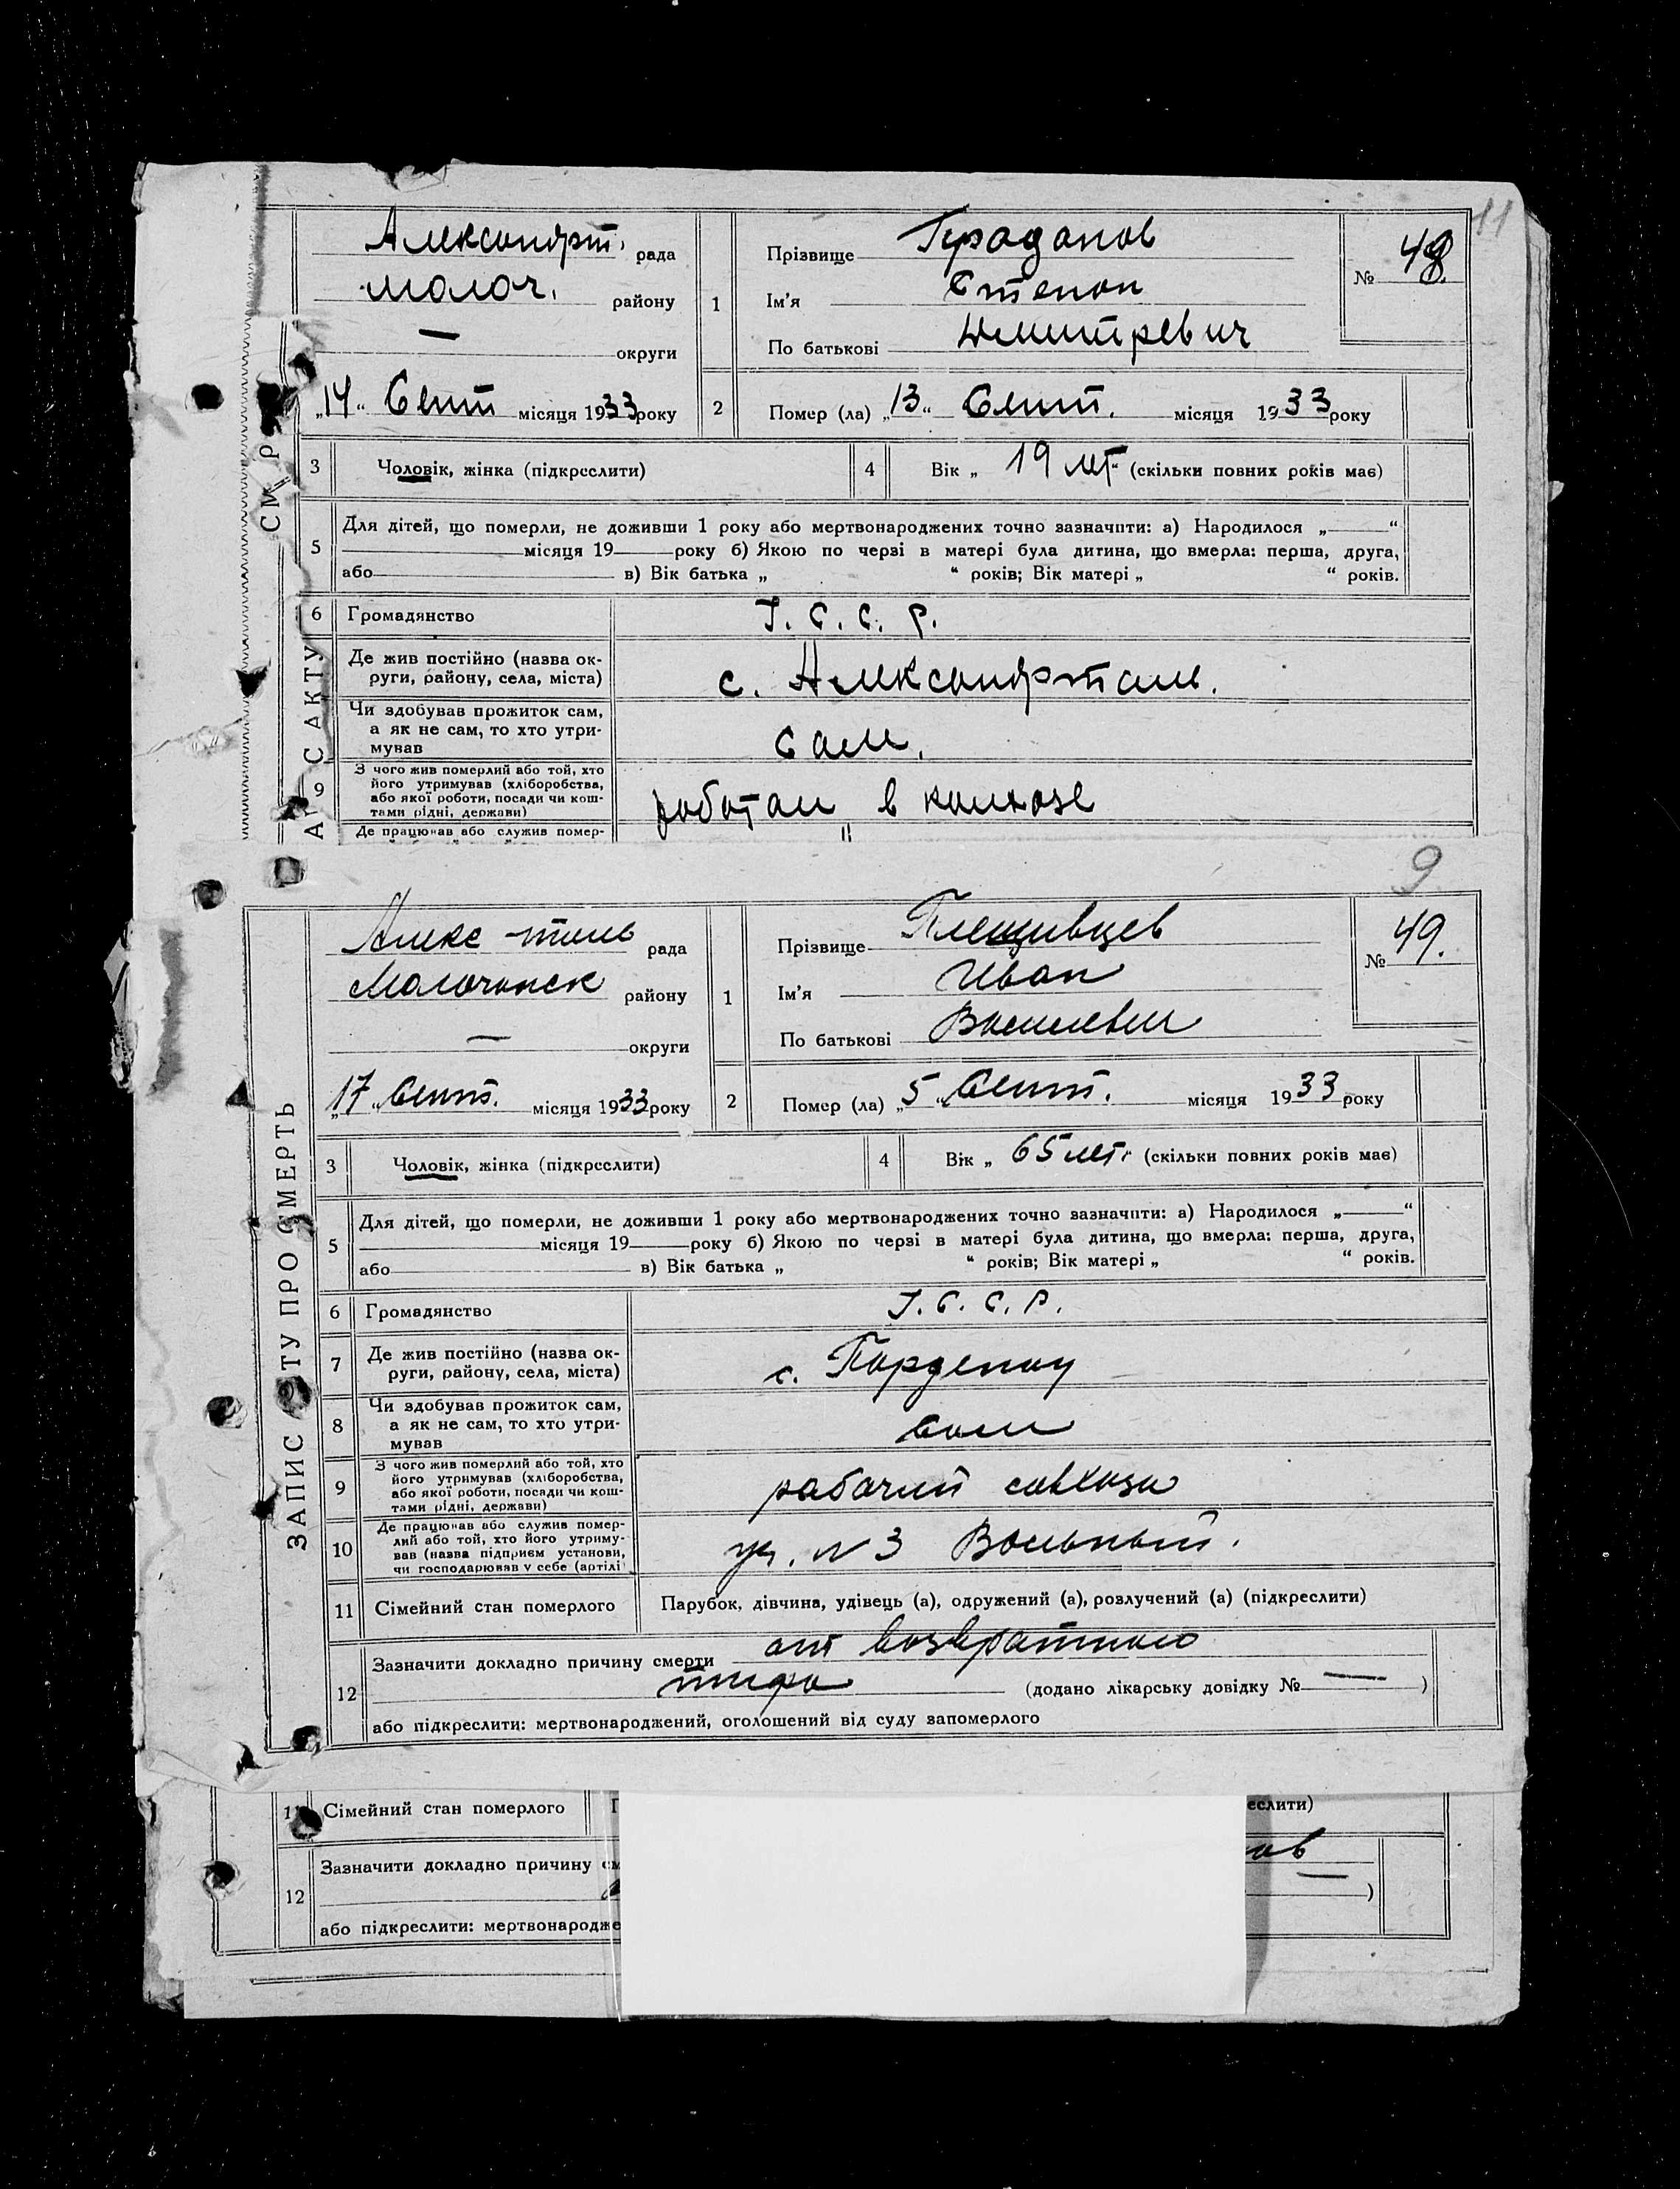 11
Александрт. рада
молоч. району
— округи
„14“ Сент місяця 1933 року
1
Прізвище
Ім'я Степан
По батькові Дмитревич
№ 48.
2 Помер (ла) „13“ Сент. місяця 1933 року
3 Чоловік, жінка (підкреслити)
4 Вік „ 19 лет “ (скільки повних років має)
5 Для дітей, що померли, не доживши 1 року або мертвонароджених точно зазначити: а) Народилося „ “
місяця 19 року б) Якою по черзі в матері була дитина, що вмерла: перша, друга,
або в) Вік батька „ “ років; Вік матері „ “ років.
6 Громадянство У. С. С. Р.
Де жив постійно (назва ок-
руги, району, села, міста)
с. Александрталь.
Чи здобував прожиток сам,
а як не сам, то хто утри-
мував
Сам.
9 З чого жив померлий або той, хто
його утримував (хліборобства,
або якої роботи, посади чи кош-
тами рідні, держави)
работал в колхозе
Де працював або служив помер-
"
9
ЗАПИС АКТУ ПРО СМЕРТЬ
Алекс-таль рада
Молочанск району
— округи
„17“ Сент. місяця 1933 року
1
Прізвище Плещивцев
Ім'я Иван
По батькові Василевич
№ 49.
2 Помер (ла) „5“ Сент. місяця 1933 року
3 Чоловік, жінка (підкреслити)
4 Вік „ 65 лет. “ (скільки повних років має)
5 Для дітей, що померли, не доживши 1 року або мертвонароджених точно зазначити: а) Народилося „ “
місяця 19 року б) Якою по черзі в матері була дитина, що вмерла: перша, друга,
або в) Вік батька „ “ років; Вік матері „ “ років.
6 Громадянство У. С. С. Р.
7 Де жив постійно (назва ок-
руги, району, села, міста)
с. Парденау
8 Чи здобував прожиток сам,
а як не сам, то хто утри-
мував
Сам
9 З чого жив померлий або той, хто
його утримував (хліборобства,
або якої роботи, посади чи кош-
тами рідні, держави)
рабочий совхоза
10 Де працював або служив помер-
лий або той, хто його утриму-
вав (назва підприєм установи,
чи господарював у себе (артілі
уч. № 3 Вольный.
11 Сімейний стан померлого Парубок, дівчина, удівець (а), одружений (а), розлучений (а) (підкреслити)
12 Зазначити докладно причину смерти от возвратного
тифа (додано лікарську довідку № — )
або підкреслити: мертвонароджений, оголошений від суду запомерлого
11 Сімейний стан померлого
еслити)
12 Зазначити докладно причину см
ов
— )
або підкреслити: мертвонародже